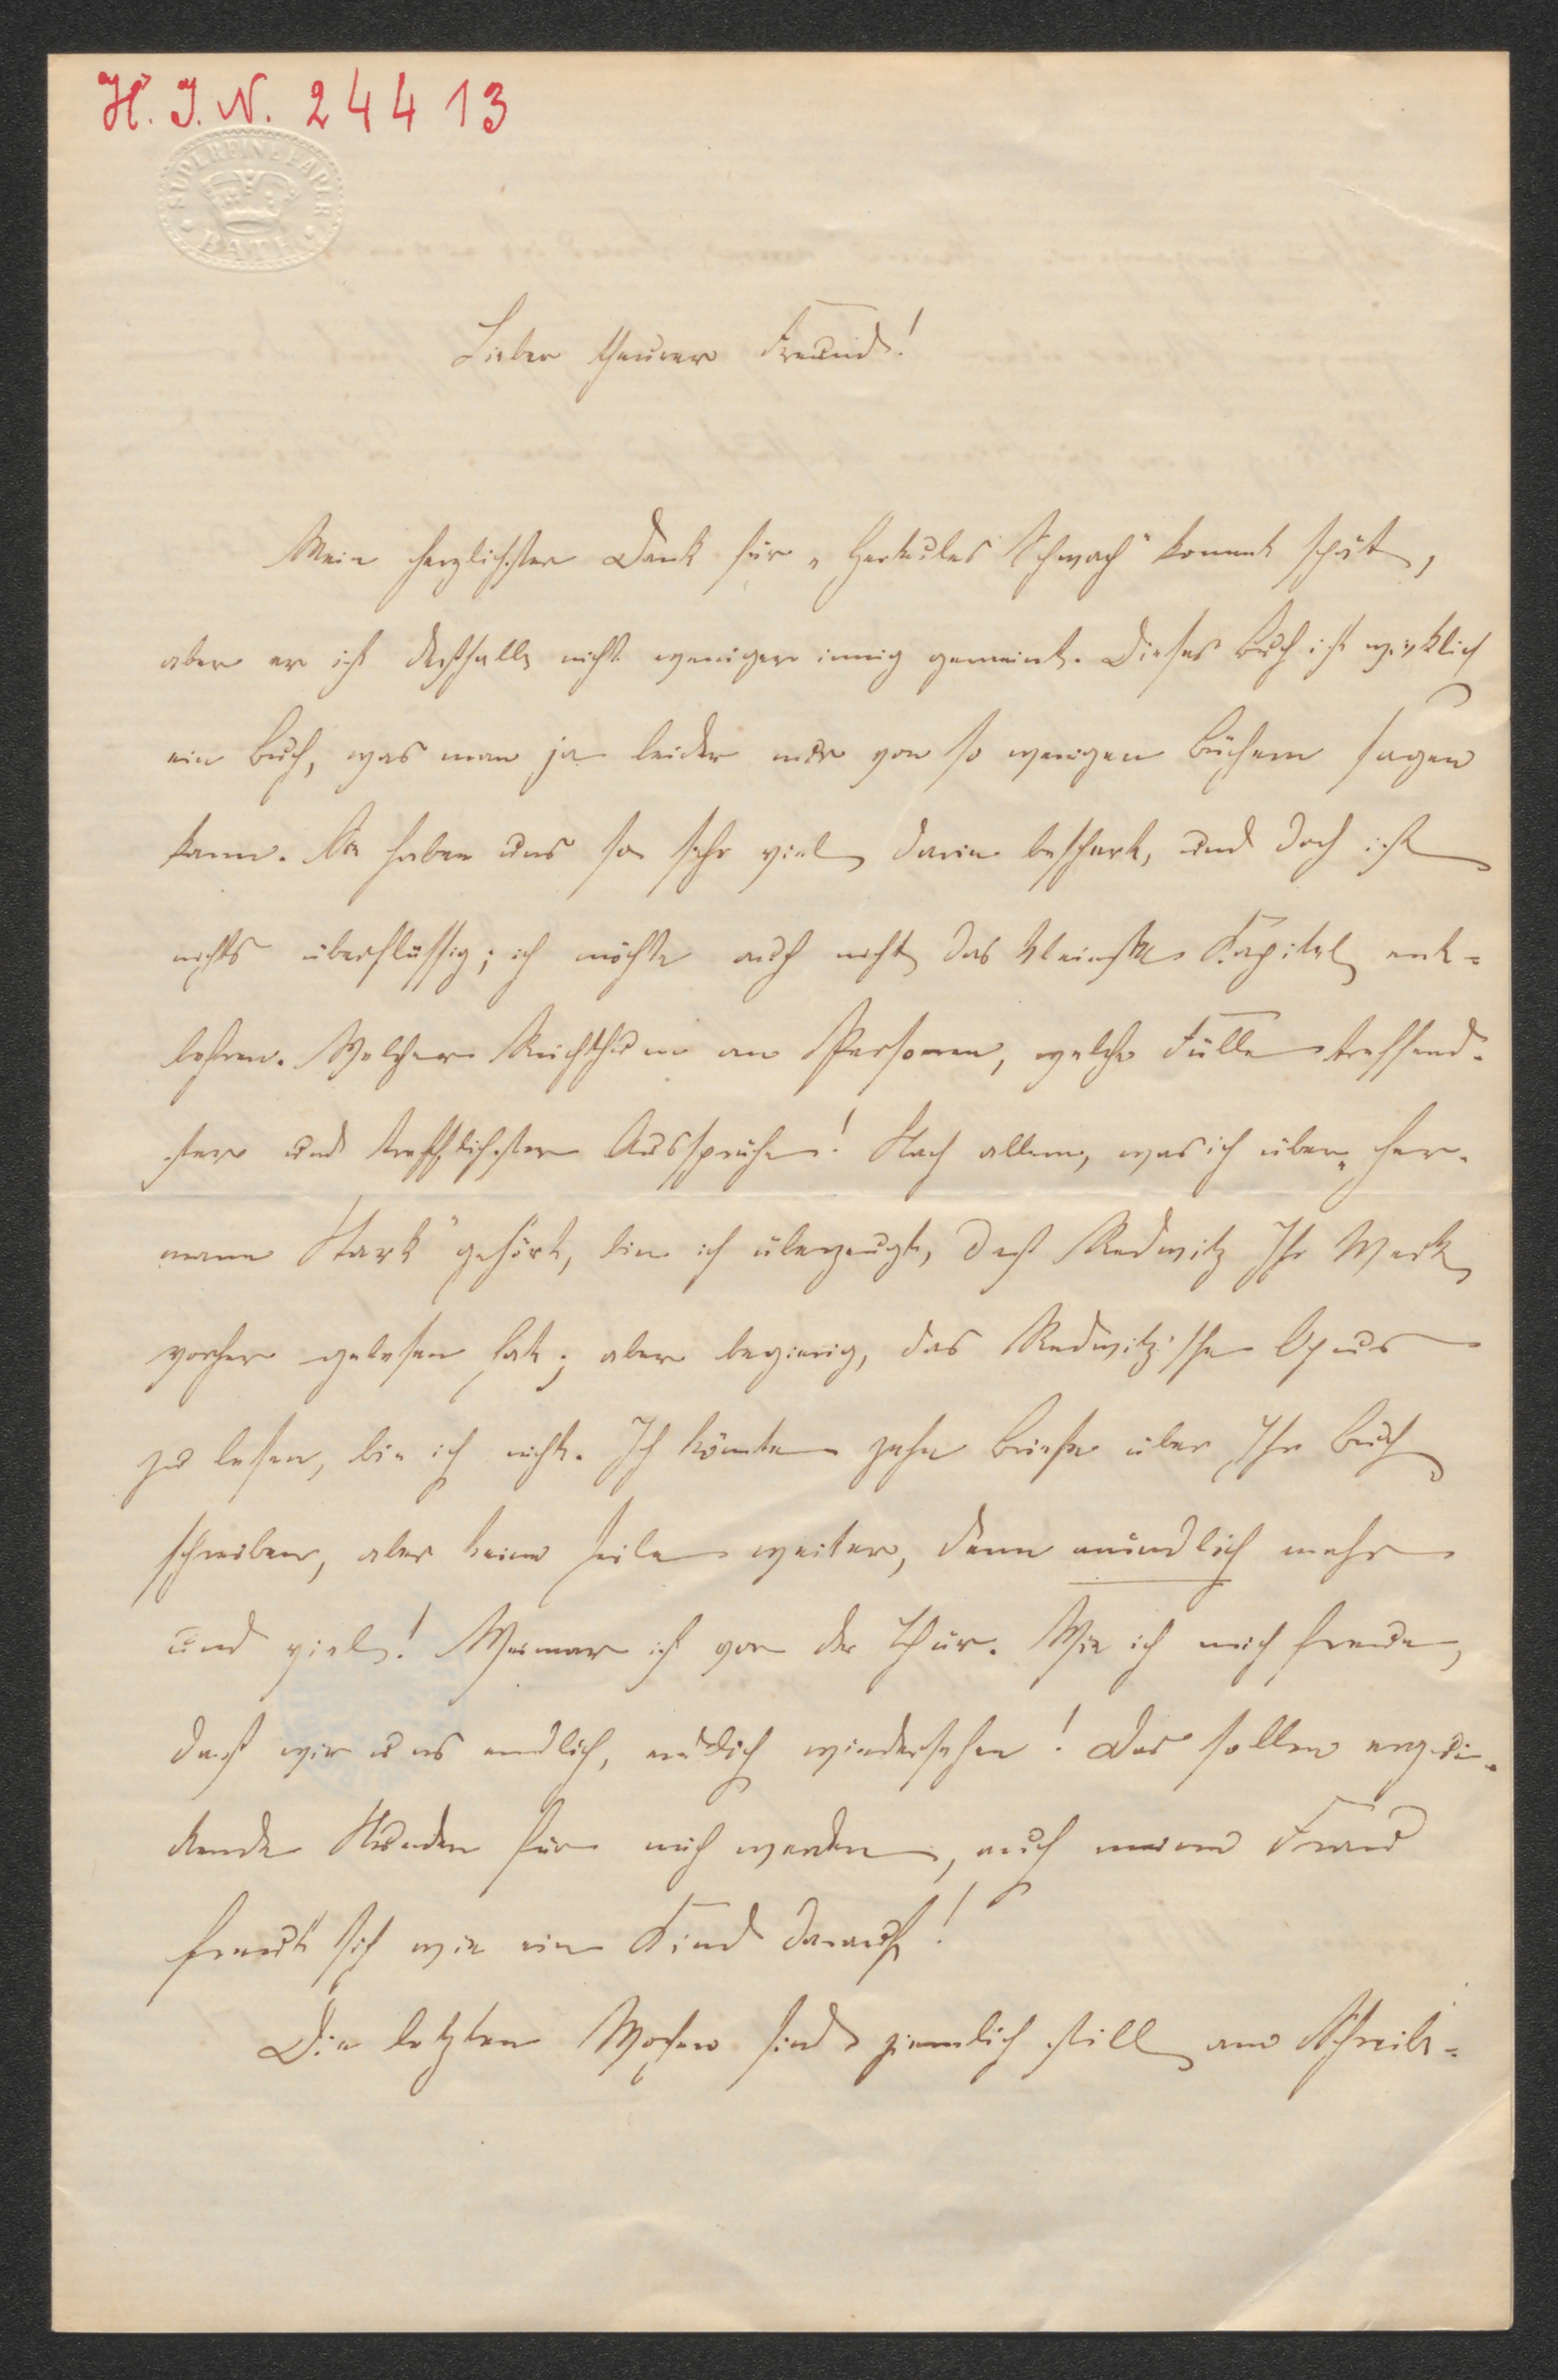 H. I. N. 24413
SUPERFINE PAPER
BATH
Lieber theurer Freund!
Mein herzlichster Dank für „Herkules Schwach" kommt spät,
aber er ist deßhalb nicht weniger innig gemeint. Dieses Buch ist wirklich
ein Buch, was man ja leider nur von so wenigen Büchern sagen
kann. Sie haben uns so sehr viel darin bescheert, und doch ist
nichts überflüssig; ich möchte auch nicht das kleinste Kapitel ent=
behren. Welcher Reichthum an Personen, welche Fülle treffend-
ster und trefflichster Aussprüche! Nach allem, was ich über „Her-
mann Stark" gehört, bin ich überzeugt, daß Redwitz Ihr Werk
vorher gelesen hat; aber begierig, das Redwitz'sche Opus
zu lesen, bin ich nicht. Ich könnte zehn Briefe über Ihr Buch
schreiben, aber keine Zeile weiter, denn mündlich mehr
und viel! Weimar ist vor der Thür. Wie ich mich freue,
daß wir uns endlich, endlich wiedersehen! Das sollen erquic-
kende Stunden für mich werden, auch meine Frau
freut sich wie ein Kind darauf!
Die letzten Wochen sind ziemlich still am Schreib=